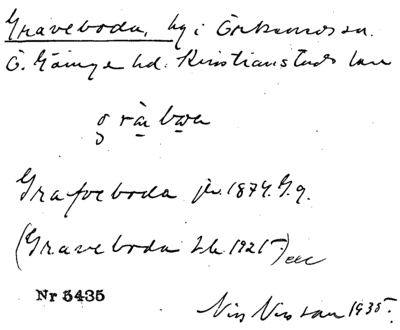 Graveboda, by i Örkeneds sn.
Ö. Göinge hd. Kristianstads län
Grafveboda jb. 1874. G.g.
(Graveboda Jb. 1925)
Nr 5435
Nils Nilsson 1935.